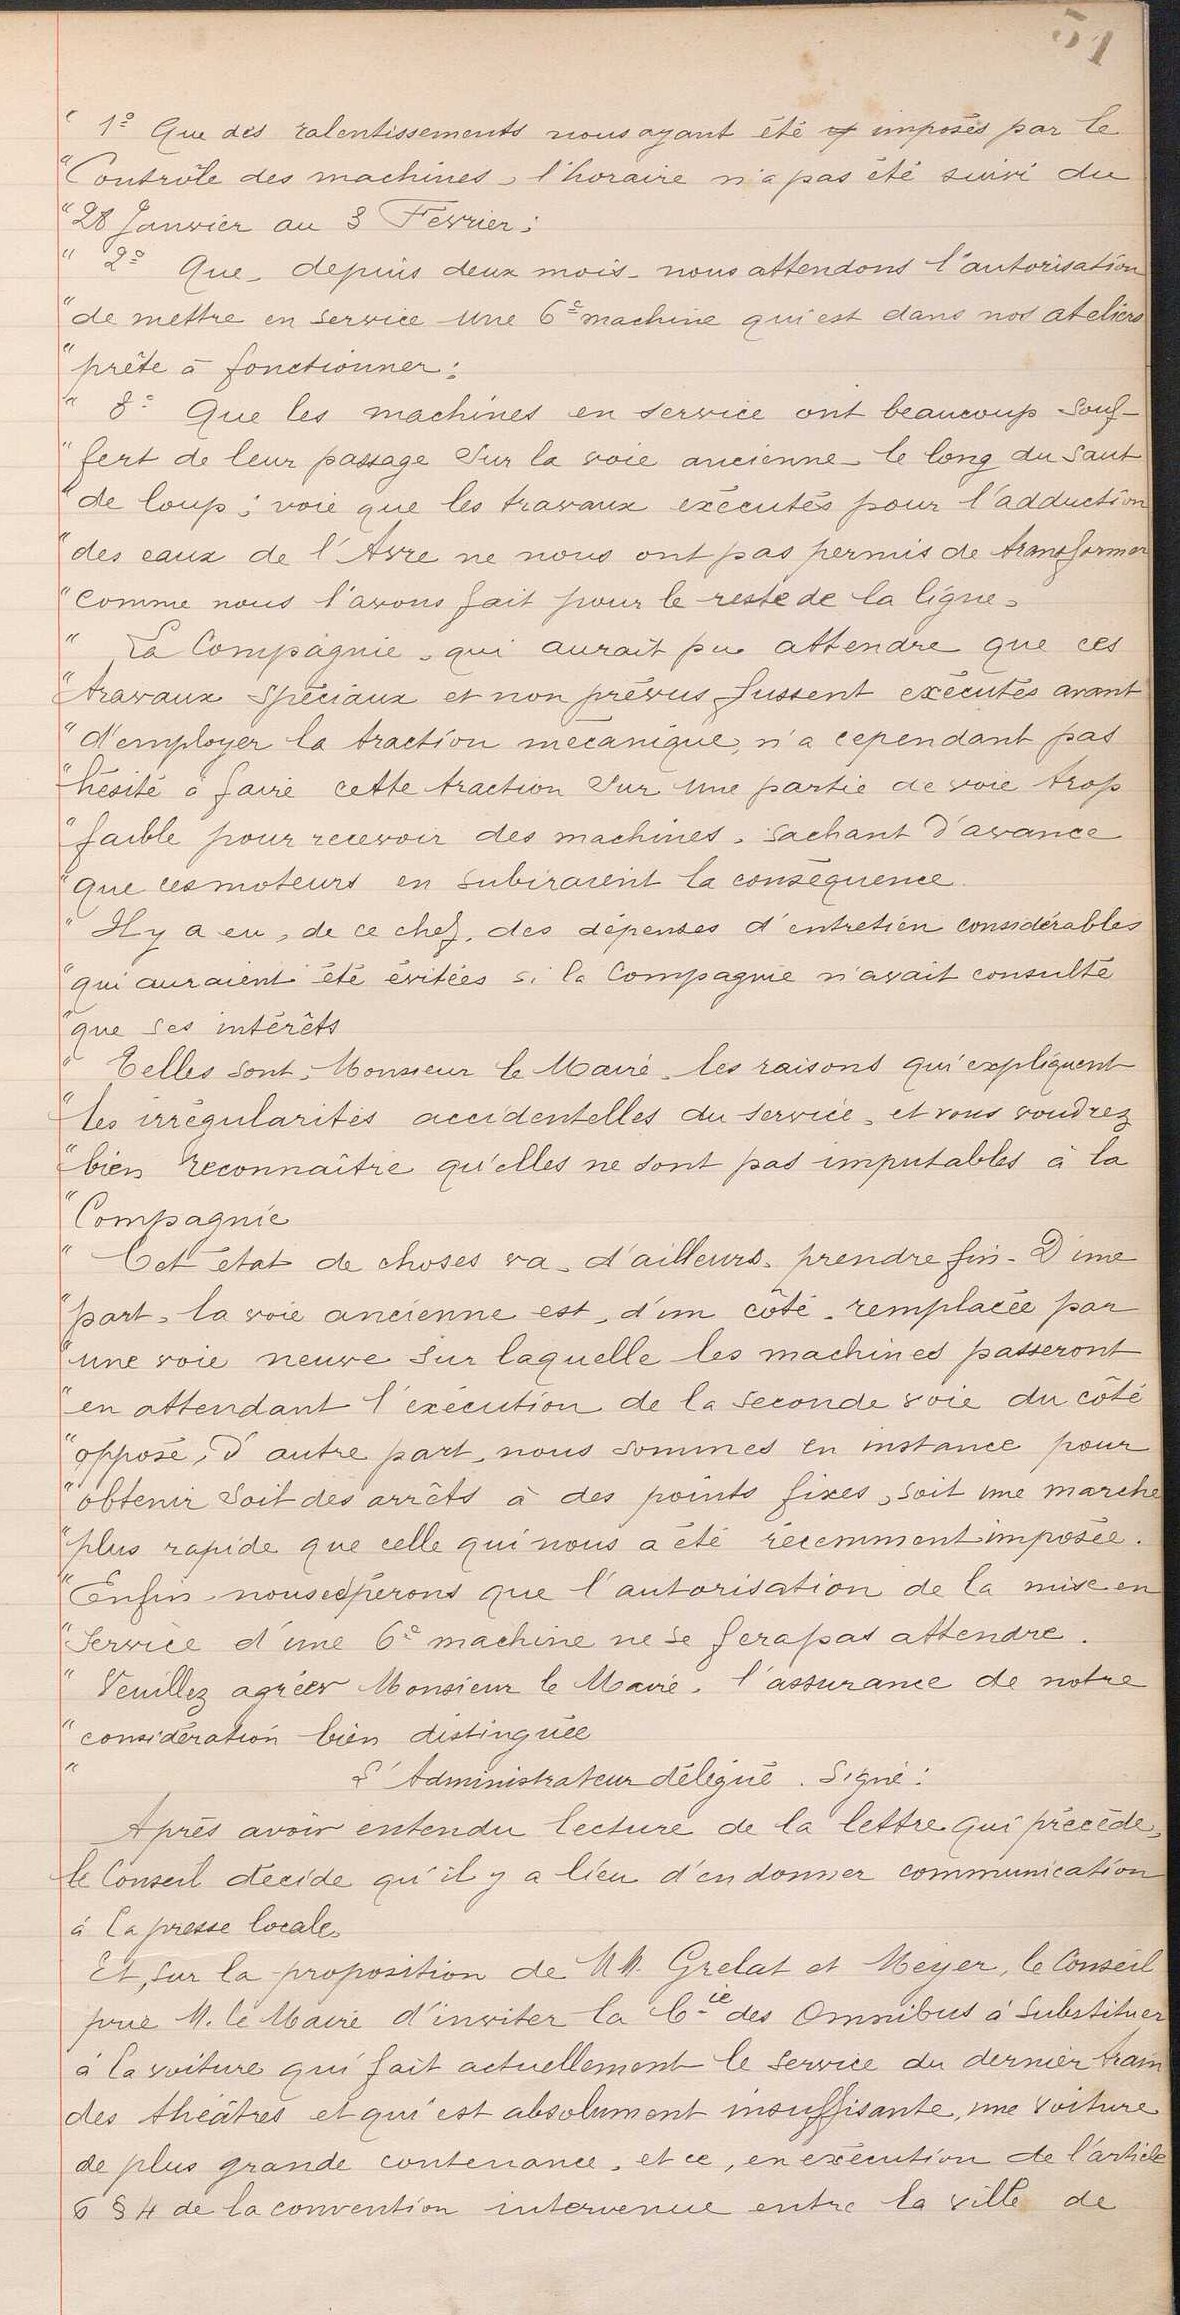 51
" 1° Que des ralentissements nous ayant été imposés par le
" Contrôle des machines, l'horaire n'a pas été suivi du
" 28 Janvier au 3 Février ;
" 2° Que, depuis deux mois, nous attendons l'autorisation
" de mettre en service une 6e machine qui est dans nos ateliers
" prête à fonctionner ;
" 3° Que les machines en service ont beaucoup souf-
" fert de leur passage sur la voie ancienne, le long du saut
" de loup ; voie que les travaux exécutés pour l'adduction
" des eaux de l'Avre ne nous ont pas permis de transformer
" comme nous l'avons fait pour le reste de la ligne.
" La Compagnie, qui aurait pu attendre que ces
" travaux spéciaux et non prévus fussent exécutés avant
" d'employer la traction mécanique, n'a cependant pas
" hésité à faire cette traction sur une partie de voie trop
" faible pour recevoir des machines, sachant d'avance
" que ces moteurs en subiraient la conséquence
" Il y a eu, de ce chef, des dépenses d'entretien considérables
" qui auraient été évitées si la Compagnie n'avait consulté
" que ses intérêts
" Telles sont, Monsieur le Maire, les raisons qui expliquent
" les irrégularités accidentelles du service, et vous voudrez
" bien reconnaître qu'elles ne sont pas imputables à la
" Compagnie
" Cet état de choses va, d'ailleurs, prendre fin. D'une
" part, la voie ancienne est, d'un côté, remplacée par
" une voie neuve sur laquelle les machines passeront
" en attendant l'exécution de la seconde voie du côté
" opposé, d'autre part, nous sommes en instance pour
" obtenir soit des arrêts à des points fixes, soit une marche
" plus rapide que celle qui nous a été récemment imposée.
" Enfin, nous espérons que l'autorisation de la mise en
" service d'une 6e machine ne se fera pas attendre.
" Veuillez agréer Monsieur le Maire, l'assurance de notre
" considération bien distinguée
" L'Administrateur délégué. Signé :
Après avoir entendu lecture de la lettre qui précède,
le Conseil décide qu'il y a lieu d'en donner communication
à la presse locale.
Et, sur la proposition de MM. Grelat et Meyer, le Conseil
prie M. le Maire d'inviter la Cie des Omnibus à substituer
à la voiture qui fait actuellement le service du dernier train
des théâtres et qui est absolument insuffisante, une voiture
de plus grande contenance, et ce, en exécution de l'article
6 § 4 de la convention intervenue entre la ville de